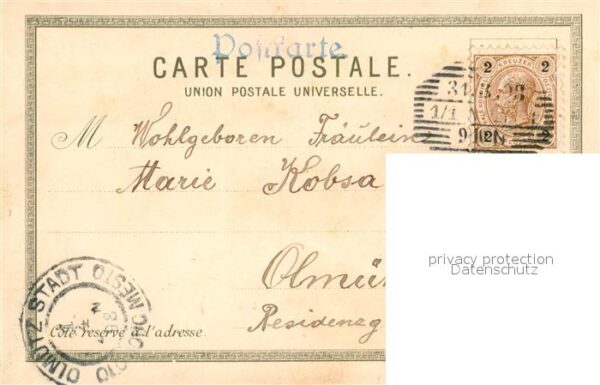 Postkarte.
CARTE POSTALE.
UNION POSTALE UNIVERSELLE.
2 KREUZER 2
31. 8. 98
1/1
9 N
2 2
M Wohlgeboren Fräulein
Marie Kobsa
privacy protection
Datenschutz
Olmü
Residenzg
Côté réservé à l'adresse.
OLMÜTZ STADT
OLOMOUC MĚSTO